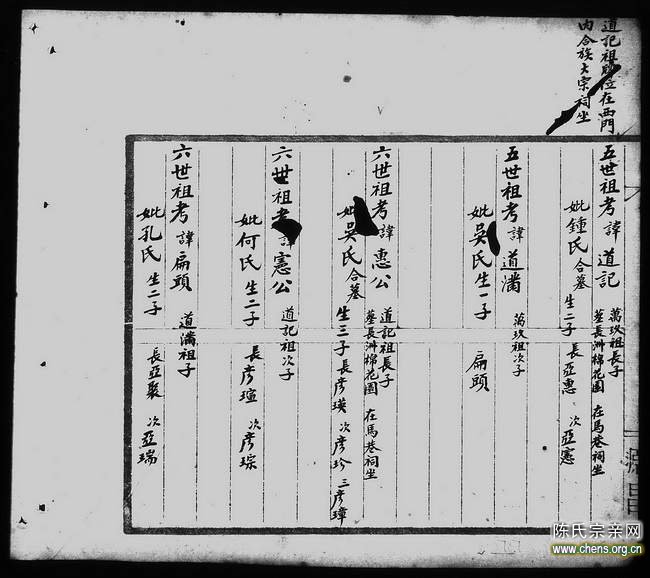 道記祖 位在西門
內合族大宗祠坐
五世祖考諱道記
萬玖祖長子
墓長洲棉花園 在馬巷祠坐
妣鍾氏合墓
生二子 長亞惠 次亞憲
五世祖考諱道滿
萬玖祖次子
妣吳氏生一子 扁頭
六世祖考諱惠公
道記祖長子
墓長洲棉花園 在馬巷祠坐
妣吳氏合墓
生三子長彥瑛 次彥珍 三彥璋
六世祖考諱憲公
道記祖次子
妣何氏生二子 長彥瑄 次彥琮
六世祖考諱扁頭
道滿祖子
妣孔氏生二子 長亞聚 次亞瑞
陈氏宗亲网
www.chens.org.cn